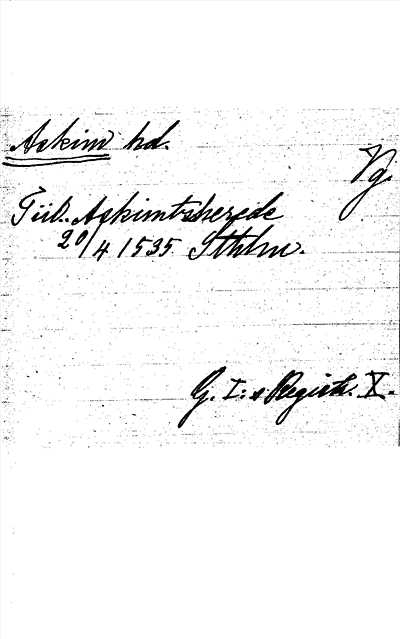 Askim hd.
Vg.
Tiil. Askimtsherede
20/4 1535 Sthlm.
G. I:s Registr. X.